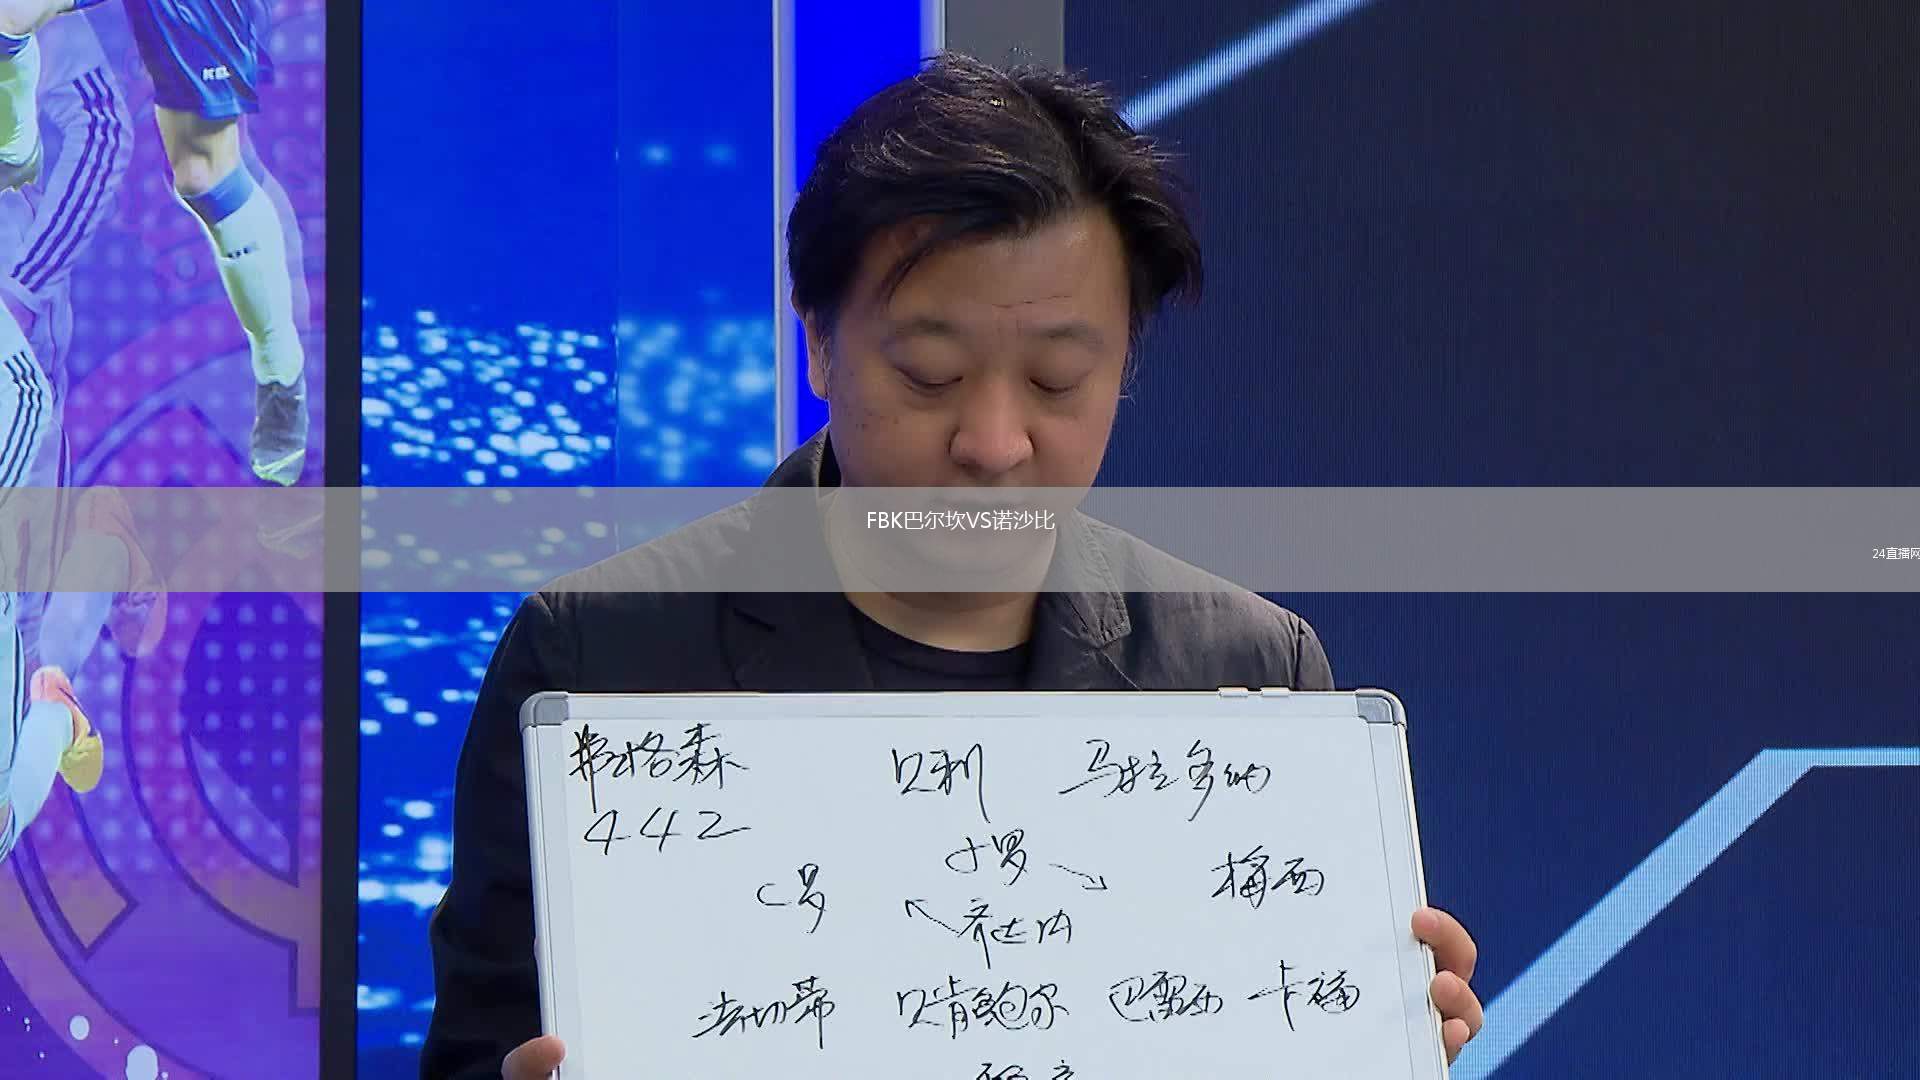 FBK巴尔坎VS诺沙比
24直播网
弗格森 贝利 马拉多纳
442
小罗
C罗 梅西
齐达内
法切蒂 贝肯鲍尔 巴雷西 卡福